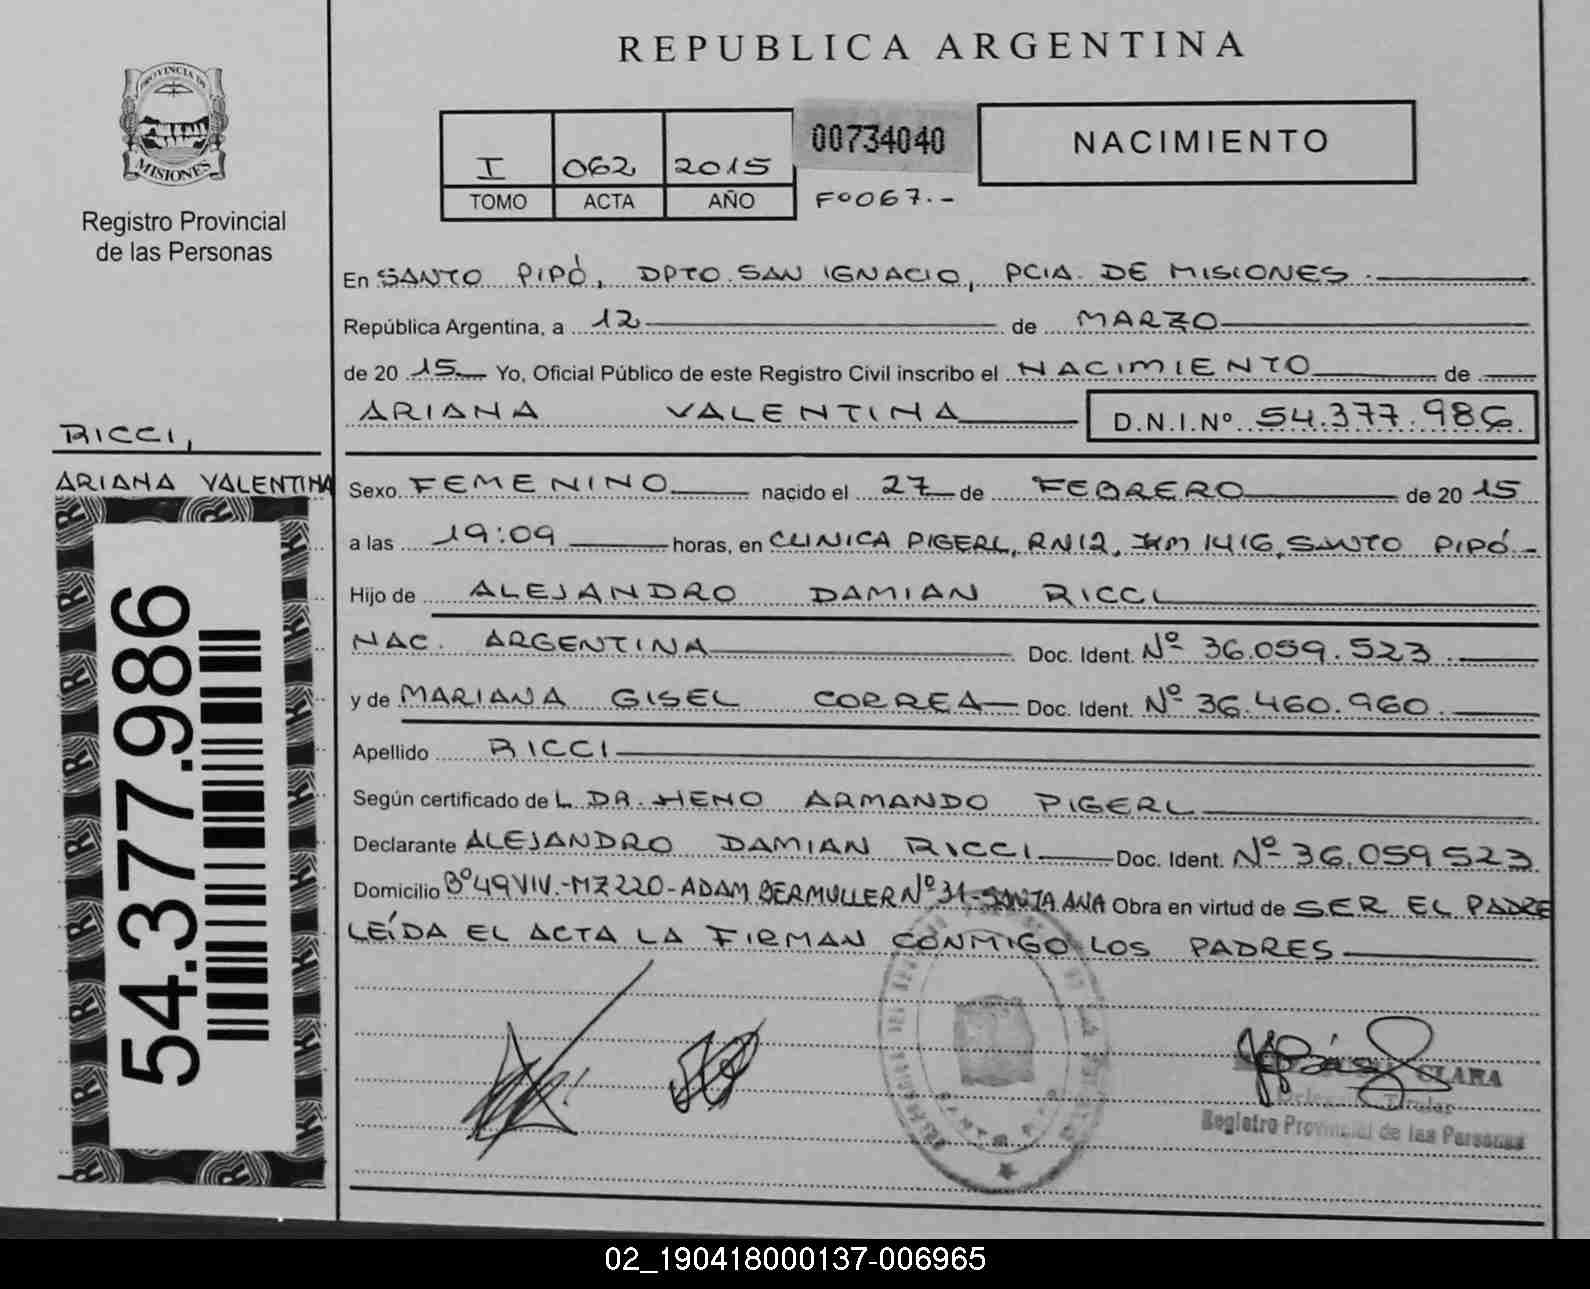 REPUBLICA ARGENTINA
PROVINCIA DE
MISIONES
Registro Provincial
de las Personas
I 062 2015
TOMO ACTA AÑO
00734040
Fº 067.-
NACIMIENTO
En SANTO PIPÓ, DPTO. SAN IGNACIO, PCIA. DE MISIONES.
República Argentina, a 12 de MARZO
de 20 15 Yo, Oficial Público de este Registro Civil inscribo el NACIMIENTO de
ARIANA VALENTINA D.N.I.Nº 54.377.986
RICCI,
ARIANA VALENTINA
54.377.986
Sexo FEMENINO nacido el 27 de FEBRERO de 20 15
a las 19:09 horas, en CLINICA PIGERL, RN12, KM 1416, SANTO PIPÓ.-
Hijo de ALEJANDRO DAMIAN RICCI
NAC. ARGENTINA Doc. Ident. Nº 36.059.523
y de MARIANA GISEL CORREA Doc. Ident. Nº 36.460.960.
Apellido RICCI
Según certificado de L DR. HENO ARMANDO PIGERL
Declarante ALEJANDRO DAMIAN RICCI Doc. Ident. Nº 36.059523
Domicilio Bº 49 VIV.-MZ 220-ADAM BERMULLER Nº 31-SANTA ANA Obra en virtud de SER EL PADRE
LEÍDA EL ACTA LA FIRMAN CONMIGO LOS PADRES
CLARA
Titular
Registro Provincial de las Personas
02_190418000137-006965